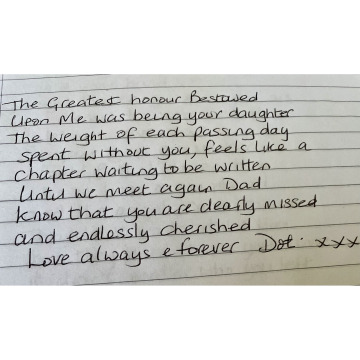 The Greatest honour Bestowed
Upon Me was being your daughter
The weight of each passing day
spent without you, feels like a
chapter waiting to be written
Until we meet again Dad
Know that you are dearly missed
and endlessly cherished
Love always & forever Dot. xxx